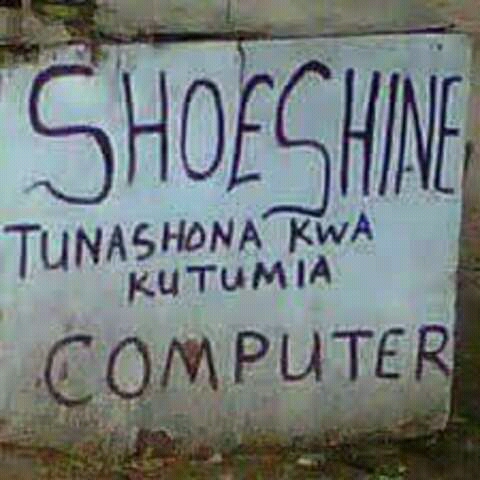 SHOESHINE
TUNASHONA KWA
KUTUMIA
COMPUTER